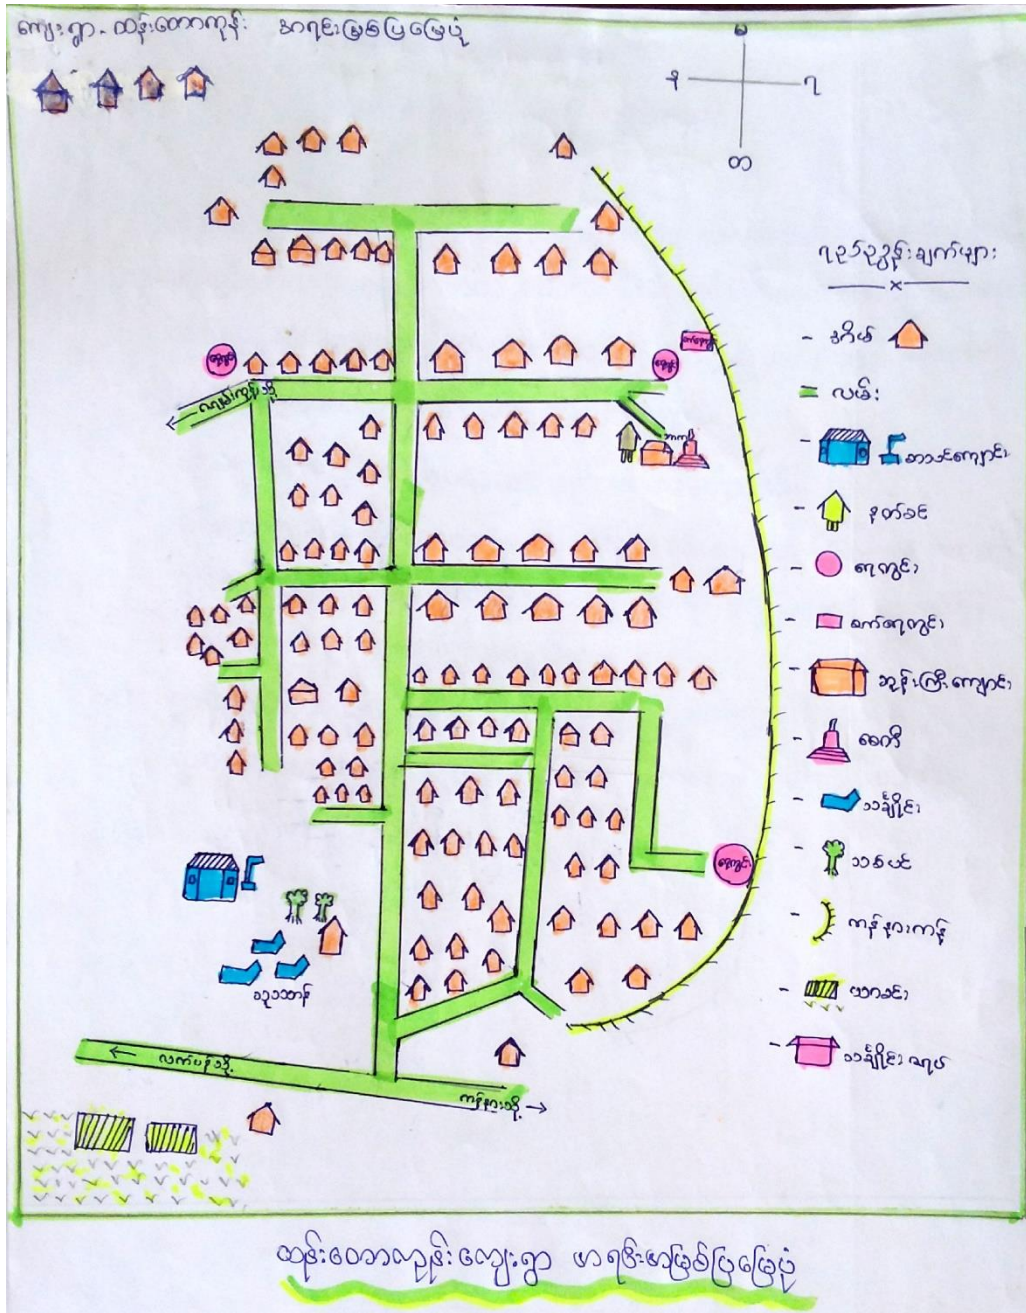 ကျေးရွာ - ထန်းတောကုန်း အရင်းအမြစ်ပြမြေပုံ
မ
န
ရ
တ
ရည်ညွှန်းချက်များ
x
- အိမ်
= လမ်း
- စာသင်ကျောင်း
- နတ်စင်
- ရေတွင်း
- စက်ရေတွင်း
- ဘုန်းကြီးကျောင်း
- စေတီ
- သင်္ချိုင်း
- သစ်ပင်
- ကမ်းနားကန့်
- သင်္ချိုင်းဇရပ်
ရေတွင်း
ရေတွင်း
စက်ရေတွင်း
ရေတွင်း
သုသာန်
လက်ပံသို့
ကမ်းနားသို့
ထန်းတောကုန်းကျေးရွာ အရင်းအမြစ်ပြမြေပုံ